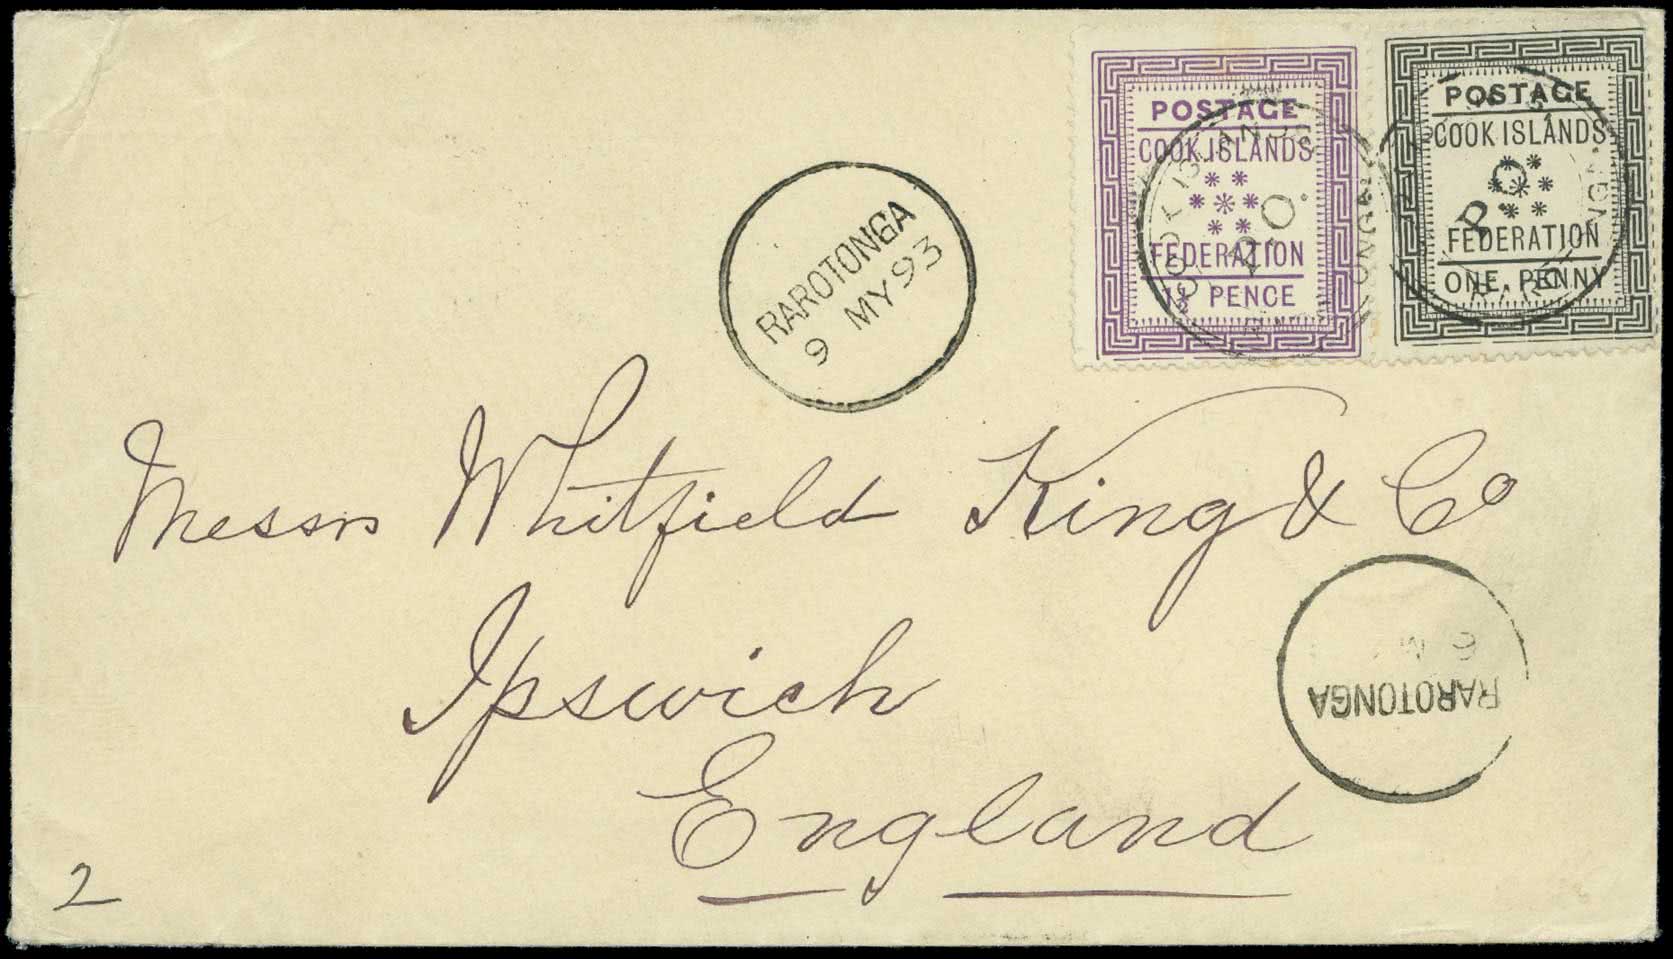 POSTAGE
COOK ISLANDS
FEDERATION
1½ PENCE
POSTAGE
COOK ISLANDS
FEDERATION
ONE PENNY
COOK ISLANDS
P.O.
P.O
RAROTONGA
9 MY 93
Messrs Whitfield King & Co
Ipswich
England
RAROTONGA
2